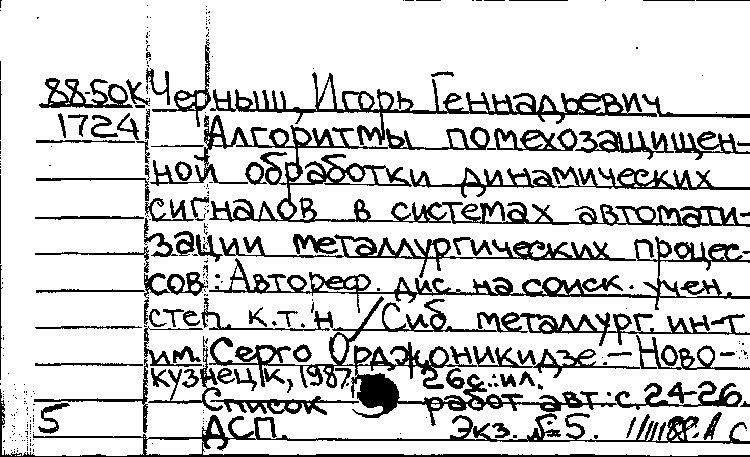 88-50К Черныш, Игорь Геннадьевич
1724 Алгоритмы помехозащищен-
ной обработки динамических
сигналов в системах автомати-
зации металлургических процес-
сов : Автореф. дис. на соиск. учен.
степ. к.т.н. / Сиб. металлург. ин-т
им. Серго Орджоникидзе. – Ново-
кузнецк, 1987. 26с.:ил.
Список работ авт.: с. 24-26.
5 ДСП. Экз. №5.